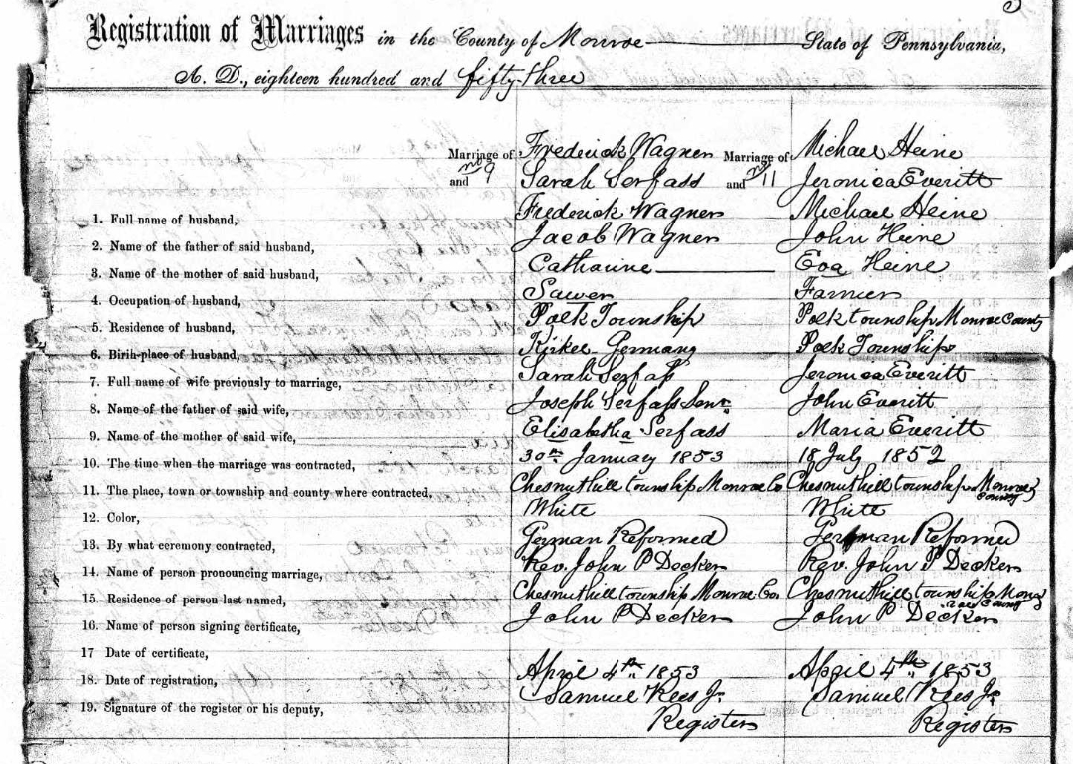 Registration of Marriages in the County of Monroe State of Pennsylvania,
A. D., eighteen hundred and fifty three
Marriage of Frederick Wagner Marriage of Michael Heine
no 9 no 11
and Sarah Serfass and Jeronica Everitt
1. Full name of husband, Frederick Wagner Michael Heine
2. Name of the father of said husband, Jacob Wagner John Heine
3. Name of the mother of said husband, Catharine Eva Heine
4. Occupation of husband, Sawer Farmer
5. Residence of husband, Polk Township Polk township Monroe County
6. Birth-place of husband, Kirkel Germany Polk Township
7. Full name of wife previously to marriage, Sarah Serfass Jeronica Everitt
8. Name of the father of said wife, Joseph Serfass Senr. John Everitt
9. Name of the mother of said wife, Elisabetha Serfass Maria Everitt
10. The time when the marriage was contracted, 30th January 1853 18 July 1852
11. The place, town or township and county where contracted, Chesnuthill township Monroe Co Chesnuthill township Monroe
County
12. Color, White White
13. By what ceremony contracted, German Reformed German Reformed
14. Name of person pronouncing marriage, Rev. John P Decker Rev. John P Decker
15. Residence of person last named, Chesnuthill township Monroe Co. Chesnuthill township Mon
roe County
16. Name of person signing certificate, John P Decker John P Decker
17 Date of certificate,
18. Date of registration, April 4th 1853 April 4th 1853
19. Signature of the register or his deputy, Samuel Rees Jr. Samuel Rees Jr.
Register Register